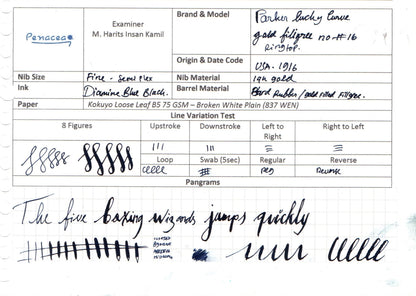 Penacea
Examiner
M. Harits Insan Kamil
Brand & Model
Parker Lucky Curve
gold filigree no #16
Ringtop.
Origin & Date Code
USA. 1916
Nib Size
Fine - Semi Flex
Nib Material
14k gold
Ink
Diamine Blue Black.
Barrel Material
Hard Rubber/ Gold filled Filigree.
Paper
Kokuyo Loose Leaf B5 75 GSM – Broken White Plain (837 WEN)
Line Variation Test
8 Figures
Upstroke
Downstroke
Left to Right
Right to Left
Loop
Swab (5sec)
Regular
Reverse
Reg
Reverse
Pangrams
The five boxing wizards jumps quickly